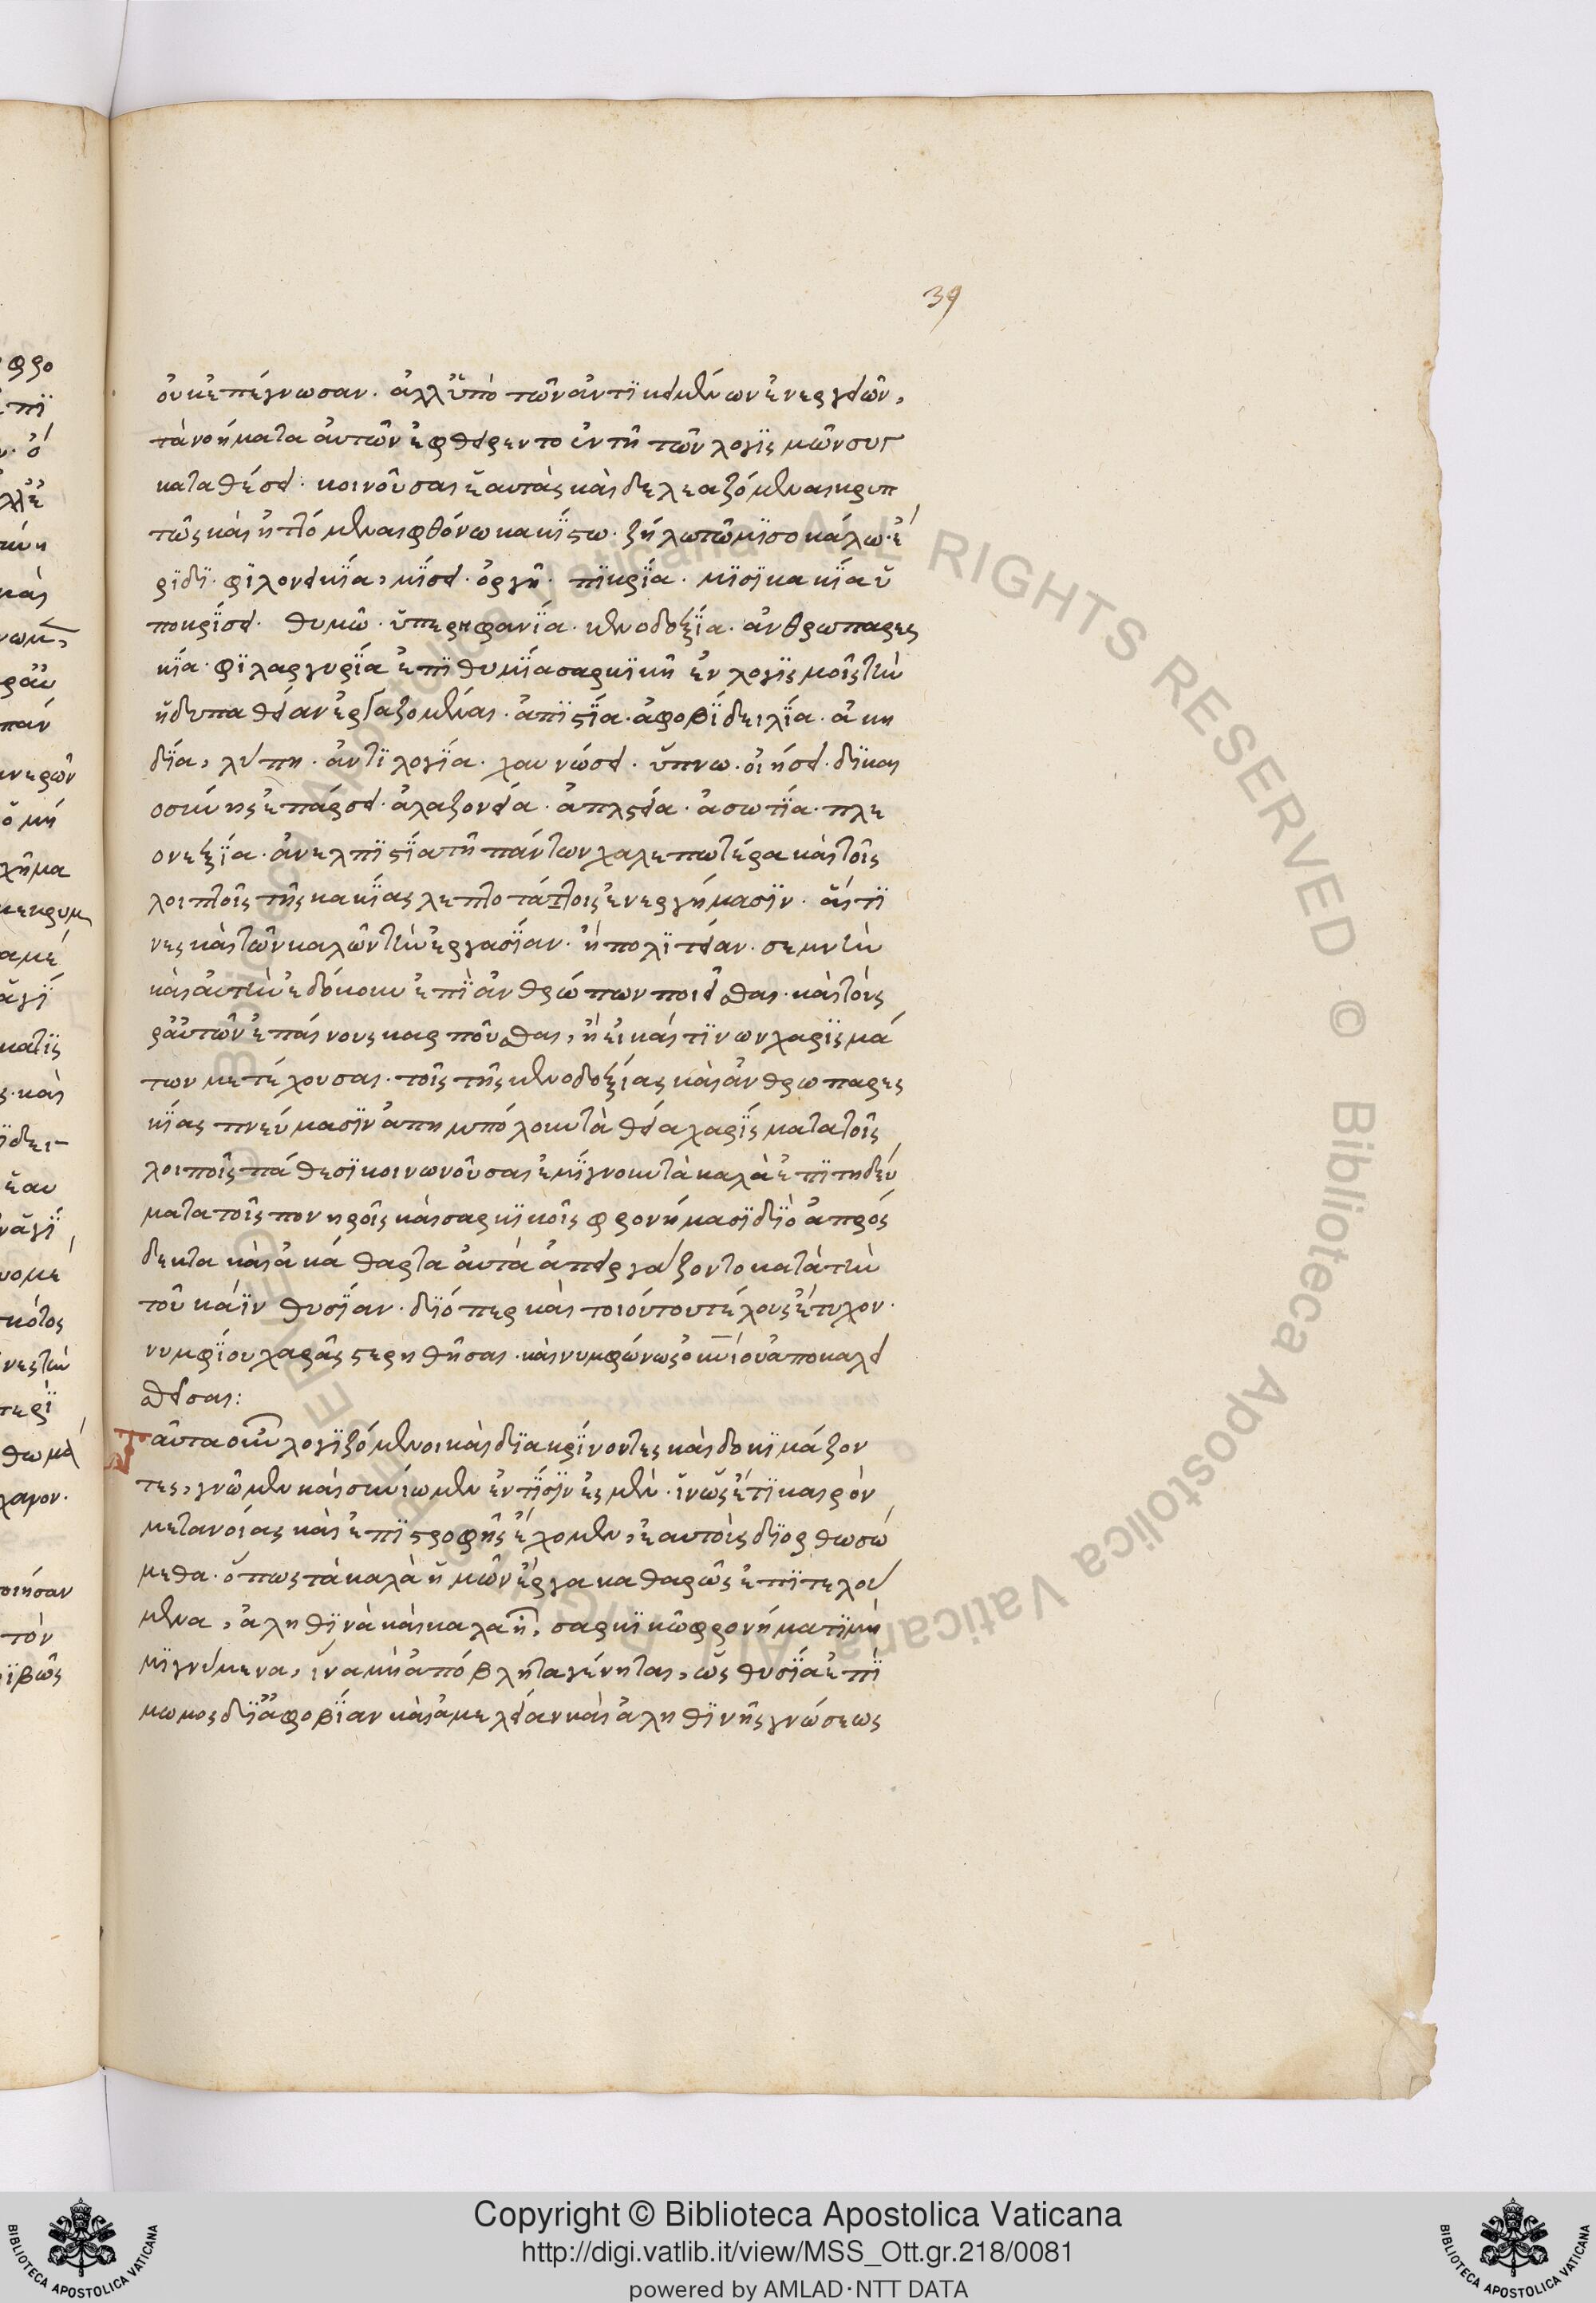 39
οὐκ ἐπέγνωσαν. ἀλλ' ὑπὸ τῶν ἀντικειμένων ἐνεργειῶν,
τὰ νοήματα αὐτῶν ἐφθείροντο ἐν τῇ τῶν λογισμῶν συγ
καταθέσει. κοινοῦσαι ἑαυτὰς καὶ δελεαζόμεναι κρυπ
τῶς καὶ ἡττόμεναι φθόνω κακίστω. ζηλωτῶ μισοκάλω. ἔ
ριδι. φιλονεικία, μίσει. ὀργῆ. πικρία. μισικακία ὑ
ποκρίσει. θυμῶ. ὑπερηφανία. κενοδοξία. ἀνθρωπαρεσ
κία. φιλαργυρία ἐπιθυμία σαρκικῆ ἐν λογισμοῖς τὴν
ἡδυπάθειαν ἐργαζομένας. ἀπιστία. ἀφοβί δειλία. ἀκη
δία, λύπη. ἀντιλογία. χαυνώσει. ὕπνω. οἰήσει. δικαι
οσύνης ἐπάρσει. ἀλαζονεία. ἀπληστεία. ἀσωτία. πλε
ονεξία. ἀνελπιστία τῆ πάντων χαλεπωτέρα καὶ τοῖς
λοιποῖς τῆς κακίας λεπτοτάτοις ἐνεργήμασιν. αἵτι
νες καὶ τῶν καλῶν τὴν ἐργασίαν. ἢ πολιτείαν. σεμνὴν
καὶ αὐτὴν ἐδόκουν ἐπὶ ἀνθρώπων ποιεῖσθαι. καὶ τοὺς
παρ' αὐτῶν ἐπαίνους καρποῦσθαι, ἢ εἰ καί τινων χαρισμά
των μετέχουσαι. τοῖς τῆς κενοδοξίας καὶ ἀνθρωπαρεσ
κίας πνεύμασιν ἀπημπόλουν τὰ θεῖα χαρίσματα τοῖς
λοιποῖς πάθεσι κοινωνοῦσαι ἐμίγνουν τὰ καλὰ ἐπιτηδεύ
ματα τοῖς πονηροῖς καὶ σαρκικοῖς φρονήμασι διὸ ἀπρόσ
δεκτα καὶ ἀκάθαρτα αὐτὰ ἀπειργάζοντο κατὰ τὴν
τοῦ κάιν θυσίαν. διόπερ καὶ τοιούτου τέλους ἔτυχον.
νυμφίου χαρᾶς στερηθῆσαι. καὶ νυμφῶνος οὐνίου ἀποκλει
σθεῖσαι:
Ταῦτα οὖν λογιζόμενοι καὶ διακρίνοντες καὶ δοκιμάζον
τες, γνῶμεν καὶ συνίωμεν ἐν τίσιν ἐσμὲν. ἵν' ὡς ἔτι καιρὸν
μετανοίας καὶ ἐπιστροφῆς ἔχομεν, ἑαυτοὺς διορθωσώ
μεθα. ὅπως τὰ καλὰ ἡμῶν ἔργα καθαρῶς ἐπιτελού
μενα, ἀληθινὰ καὶ καλὰ ᾖ, σαρκικῶ φρονήματι μὴ
μιγνύμενα, ἵνα μὴ ἀπόβλητα γένηται, ὡς θυσία ἐπί
μωμος δι' ἀφοβίαν καὶ ἀμέλειαν καὶ ἀληθινῆς γνώσεως
Copyright © Biblioteca Apostolica Vaticana
http://digi.vatlib.it/view/MSS_Ott.gr.218/0081
powered by AMLAD·NTT DATA